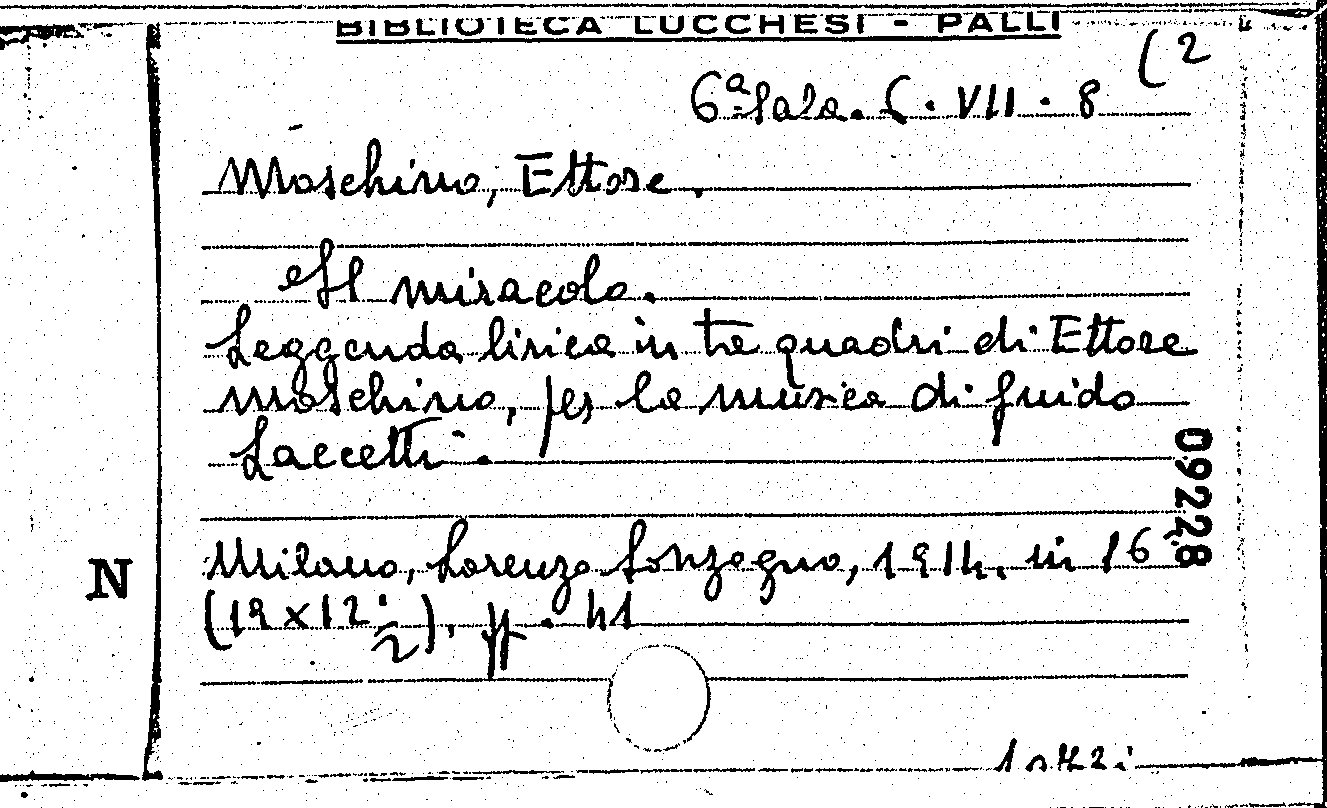 BIBLIOTECA LUCCHESI - PALLI
(2
6ª Sala. 6. VII. 8
Moschino, Ettore.
Il miracolo.
Leggenda lirica in tre quadri di Ettore
Moschino, per la musica di Guido
Laccetti.
09228
N
Milano, Lorenzo Sonzogno, 1914, in 16º
(19 x 12 1/2), pp. 41